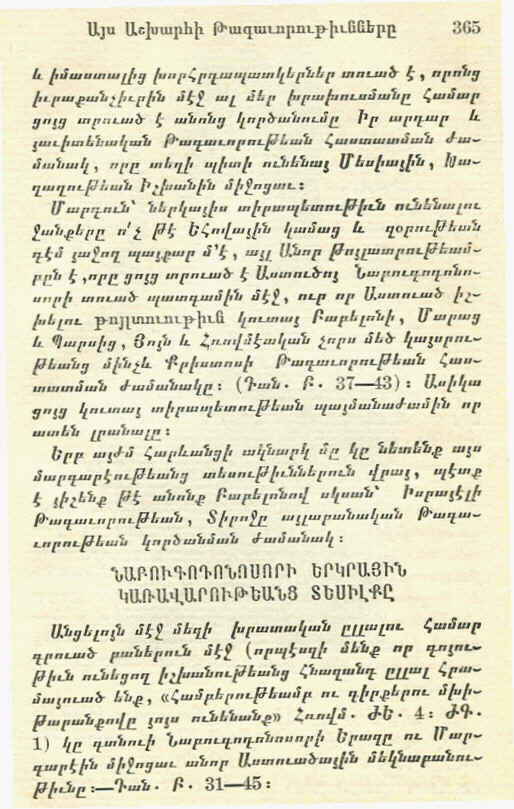 Այս Աշխարհի Թագաւորութիւնները 365
և իմաստալից խորհրդապատկերներ տուած է, որոնց
իւրաքանչիւրին մէջ ալ մեր խրախուսմանը համար
ցոյց տրուած է անոնց կործանումը Իր արդար և
յաւիտենական Թագաւորութեան հաստատման ժա-
մանակ, որը տեղի պիտի ունենայ Մեսիային, Խա-
ղաղութեան Իշխանին միջոցաւ:
Մարդուն՝ ներկայիս տիրապետութիւն ունենալու
ջանքերը ո՛չ թէ Եհովային կամաց և զօրութեան
դէմ յաջող պայքար մ՚է, այլ Անոր թոյլատրութեամ-
բըն է,որը ցոյց տրուած է Աստուծոյ Նաբուգոդոնո-
սորի տուած պատգամին մէջ, ուր որ Աստուած իշ-
խելու թոյլտուութիւն կուտայ Բաբելոնի, Մարաց
և Պարսից, Յոյն և Հռովմէական չորս մեծ կայսրու-
թեանց մինչև Քրիստոսի Թագաւորութեան հաս-
տատման ժամանակը: (Դան. Բ. 37—43): Ասիկա
ցոյց կուտայ տիրապետութեան պայմանաժամին որ
ատեն լրանալը:
Երբ այժմ հարևանցի ակնարկ մը կը նետենք այս
մարդարէութեանց տեսութիւններուն վրայ, պէտք
է յիշենք թէ անոնք Բաբելոնով սկսան՝ Իսրայէլի
Թագաւորութեան, Տիրոջը այլաբանական Թագա-
ւորութեան կործանման ժամանակ:
ՆԱԲՈՒԳՈԴՈՆՈՍՈՐԻ ԵՐԿՐԱՅԻՆ
ԿԱՌԱՎԱՐՈՒԹԵԱՆՑ ՏԵՍԻԼՔԸ
Անցելոյն մէջ մեզի խրատական ըլլալու համար
գրուած բաներուն մէջ (որպէսզի մենք որ գոյու-
թիւն ունեցող իշխանութեանց հնազանդ ըլլալ հրա-
մայուած ենք, «Համբերութեամբ ու գիրքերու մխի-
թարանքովը յոյս ունենանք» Հռովմ. ԺԵ. 4: ԺԳ.
1) կը գտնուի Նաբուգոդոնոսորի երազը ու Մար-
գարէին միջոցաւ անոր Աստուածային մեկնաբանու-
թիւնը:—Դան. Բ. 31—45: